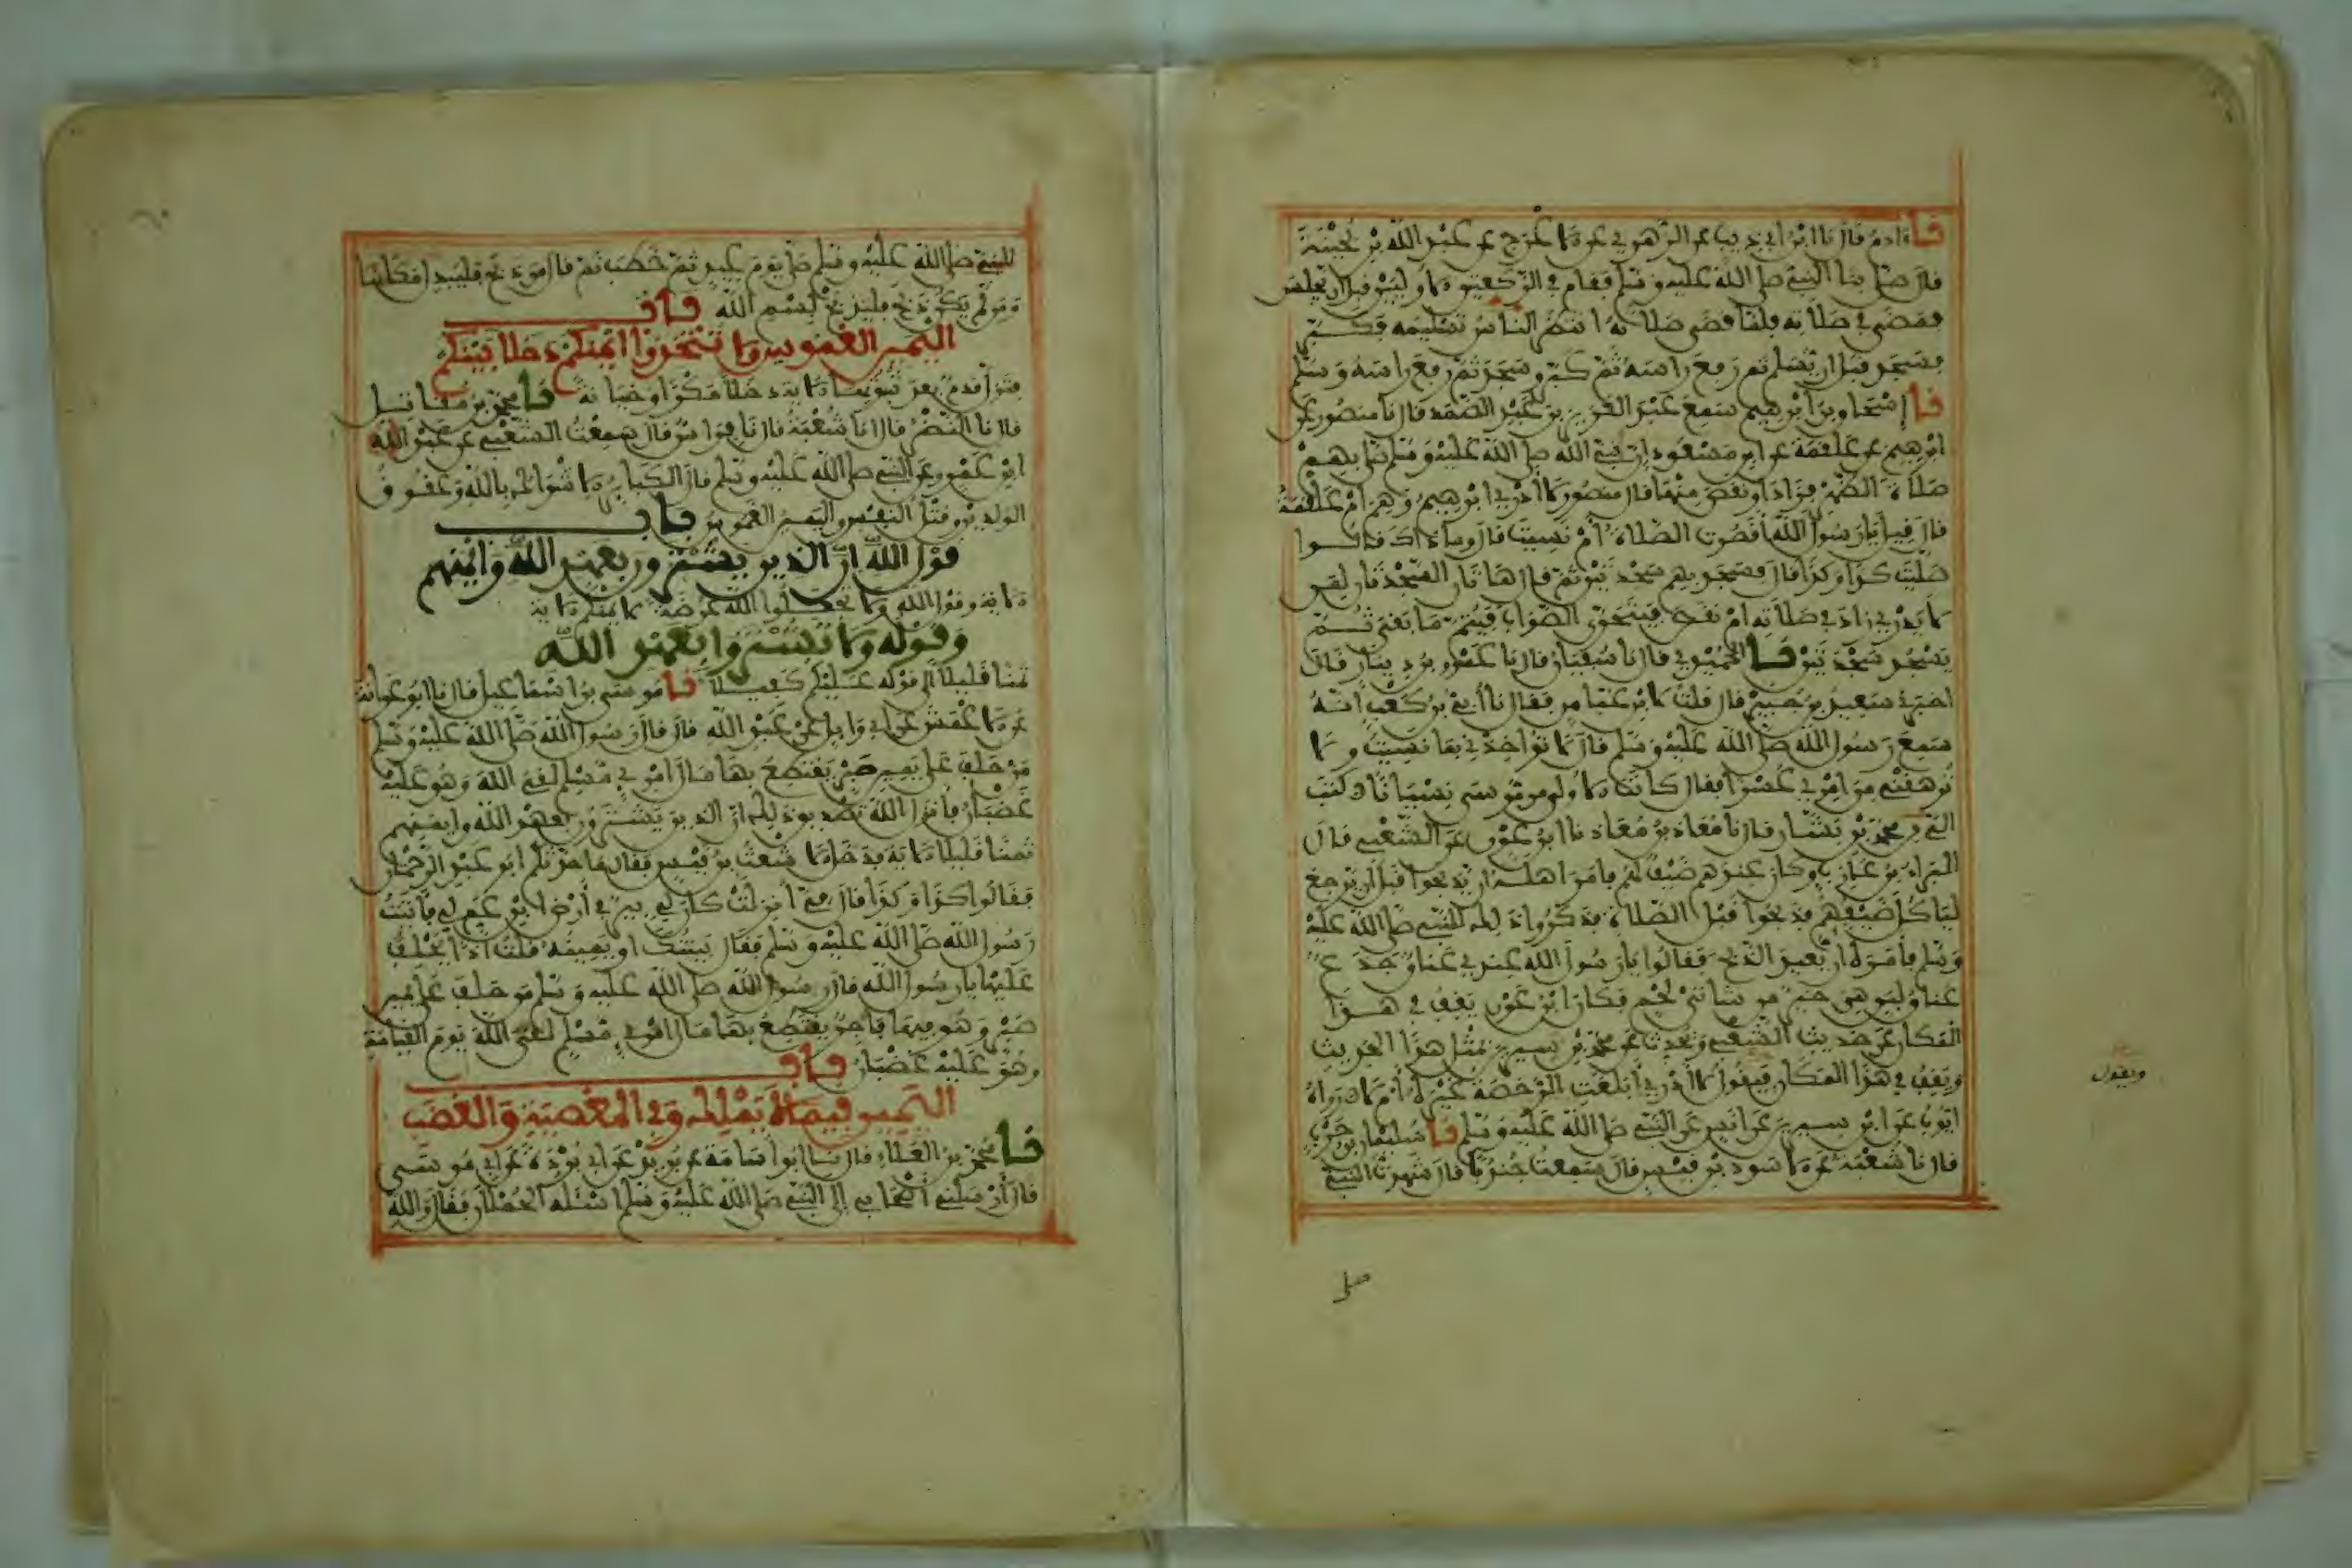 نا ءادم قال نا ابن ابي ذيب عن الزهري عن الاعرج عن عبد الله بن بحينة
قال صلى بنا النبي صلى الله عليه وسلم فقام في الركعتين الاوليين قبل ان يجلس
فمضى في صلاته فلما قضى صلاته انتظر الناس تسليمه فكبر
فسجد قبل ان يسلم ثم رفع راسه ثم كبر وسجد ثم رفع راسه وسلم
نا إسحاق بن ابرهيم سمع عبد العزيز بن عبد الصمد قال نا منصور عن
ابرهيم عن علقمة عن ابن مسعود ان نبي الله صلى الله عليه وسلم صلى بهم
صلاة الظهر فزاد او نقص منها قال منصور لا أدري ابرهيم وهم ام علقمة
قال قيل يا رسول الله أقصرت الصلاة أم نسيت قال وما ذاك قالوا
صليت كذا وكذا قال فسجد بهم سجدتين ثم قال هاتان السجدتان لمن
لا يدري زاد في صلاته ام نقص فيتحرى الصواب فيتم ما بقي ثم
يسجد سجدتين نا الحميدي قال نا سفيان قال نا عمرو بن دينار قال
اخبرني سعيد بن جبير قال قلت لابن عباس فقال نا أبي بن كعب انه
سمع رسول الله صلى الله عليه وسلم قال لا تؤاخذني بما نسيت ولا
ترهقني من امري عسرا فقال كانت الاولى من موسى نسيانا كتب
الي محمد بن بشار قال نا معاذ بن معاذ نا ابن عون عن الشعبي قال
البراء بن عازب وكان عندهم ضيف لهم فامر اهله ان يذبحوا قبل ان يرجع
لياكل ضيفهم فذبحوا قبل الصلاة فذكروا ذلك للنبي صلى الله عليه
وسلم فأمره ان يعيد الذبح فقالوا يا رسول الله عندي عناق جذع
عناق لبن هي خير من شاتي لحم فكان ابن عون يقف في هذا
المكان عن حديث الشعبي ويحدث عن محمد بن سيرين بمثل هذا الحديث
ويقف في هذا المكان فيقول لا أدري أبلغت الرخصة غيره أم لا رواه
ايوب عن ابن سيرين عن انس عن النبي صلى الله عليه وسلم نا سليمان بن حرب
قال نا شعبة عن الاسود بن قيس قال سمعت جندبا قال شهدت النبي
ويقول
صلى
للنبي صلى الله عليه وسلم صلى يوم عيد ثم خطب ثم قال من ذبح فليبدل مكانها
ومن لم يكن ذبح فليذبح بسم الله باب
اليمين الغموس ولا تتخذوا ايمنكم دخلا بينكم
فتزل قدم بعد ثبوتها الاية دخلا مكرا وخيانة نا محمد بن مقاتل
قال نا النضر قال انا شعبة قال نا فراس قال سمعت الشعبي عن عبد الله
ابن عمرو عن النبي صلى الله عليه وسلم قال الكباير الاشراك بالله وعقوق
الولدين وقتل النفس واليمين الغموس باب
قول الله ان الذين يشترون بعهد الله وايمنهم
الاية وقول الله ولا تجعلوا الله عرضة لايمنكم الاية
وقوله ولا تشتروا بعهد الله
ثمنا قليلا الى قوله عليكم كفيلا نا موسى بن اسماعيل قال نا ابو عوانة
عن الاعمش عن ابي وايل عن عبد الله قال قال رسول الله صلى الله عليه وسلم
من حلف على يمين صبر يقتطع بها مال امرئ مسلم لقي الله وهو عليه
غضبان فأنزل الله تصديق ذلك ان الذين يشترون بعهد الله وايمنهم
ثمنا قليلا الاية فدخل الاشعث بن قيس فقال ما حدثكم ابو عبد الرحمان
فقالوا كذا وكذا قال في أنزلت كان لي بير في أرض ابن عم لي فأتيت
رسول الله صلى الله عليه وسلم فقال بينتك او يمينه قلت اذا يحلف
عليها يا رسول الله قال رسول الله صلى الله عليه وسلم من حلف على يمين
صبر وهو فيها فاجر يقتطع بها مال امرئ مسلم لقي الله يوم القيامة
وهو عليه غضبان باب
اليمين فيما لا يملك وفي المعصية والغضب
نا محمد بن العلاء قال نا ابو اسامة عن بريد عن ابي بردة عن ابي موسى
قال أرسلني أصحابي الى النبي صلى الله عليه وسلم اسئله الحملان فقال والله